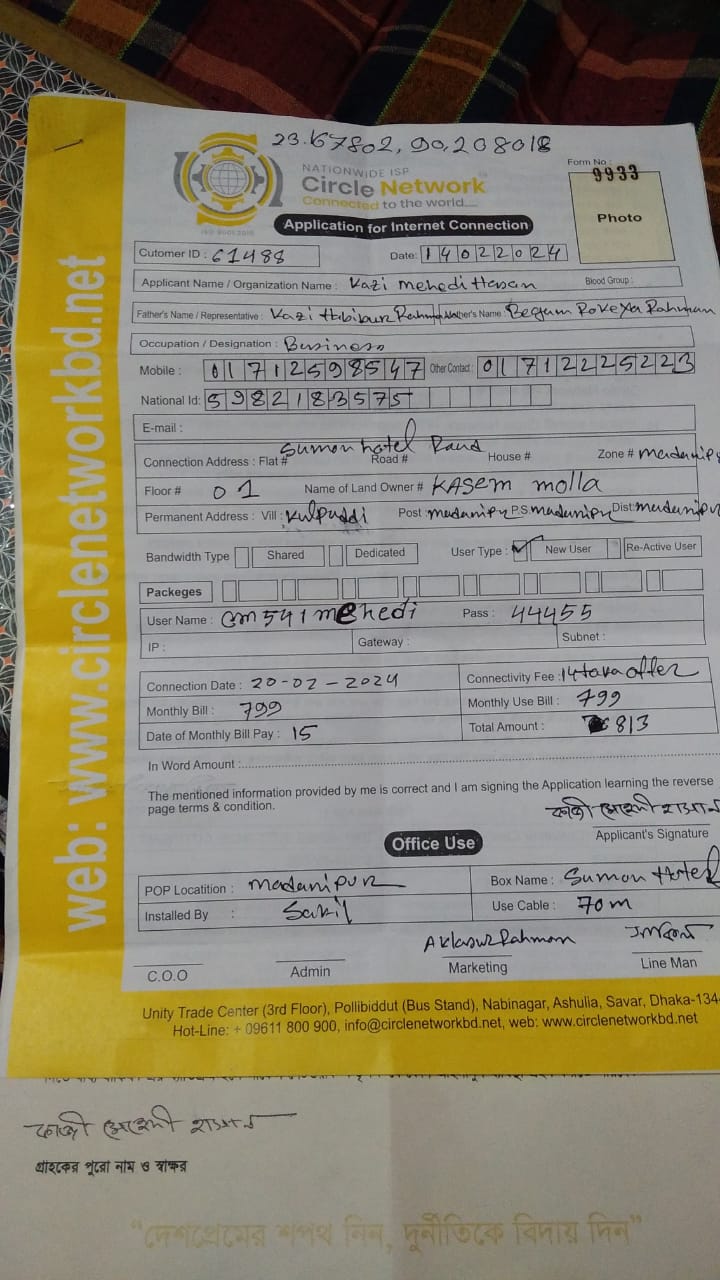 23.67802, 90.208018
NATIONWIDE ISP
Circle Network
Connected to the world....
ISO 9001:2015
Form No :
9933
Photo
Application for Internet Connection
Cutomer ID : 61488 Date: 14022024
Applicant Name / Organization Name : Kazi mehedi Hasan Blood Group :
Father's Name / Representative : Kazi Habibur Rahman Mother's Name Begum Rokeya Rahman
Occupation / Designation : Business
Mobile : 01712598547 Other Contact : 01712225223
National Id: 5982183575
E-mail :
Connection Address : Flat # Sumon hotel Road # House # Zone # madarip
Floor # 01 Name of Land Owner # KASEM molla
Permanent Address : Vill : Kulpaddi Post : madaripur P.S. madaripur Dist: madaripur
Bandwidth Type Shared Dedicated User Type : New User Re-Active User
Packeges
User Name : cm541mehedi Pass : 44455
IP : Gateway : Subnet :
Connection Date : 20-02-2024 Connectivity Fee : 14 taka offer
Monthly Bill : 799 Monthly Use Bill : 799
Date of Monthly Bill Pay : 15 Total Amount : 813
In Word Amount :
The mentioned information provided by me is correct and I am signing the Application learning the reverse
page terms & condition.
কাজী মেহেদী হাসান
Applicant's Signature
Office Use
POP Locatition : madaripur Box Name : Sumon Hotel
Installed By : Sakil Use Cable : 70m
Aklasur Rahman
C.O.O Admin Marketing Line Man
Unity Trade Center (3rd Floor), Pollibiddut (Bus Stand), Nabinagar, Ashulia, Savar, Dhaka-134
Hot-Line: + 09611 800 900, info@circlenetworkbd.net, web: www.circlenetworkbd.net
web: www.circlenetworkbd.net
কাজী মেহেদী হাসান
গ্রাহকের পুরো নাম ও স্বাক্ষর
“দেশপ্রেমের শপথ নিন, দুর্নীতিকে বিদায় দিন”